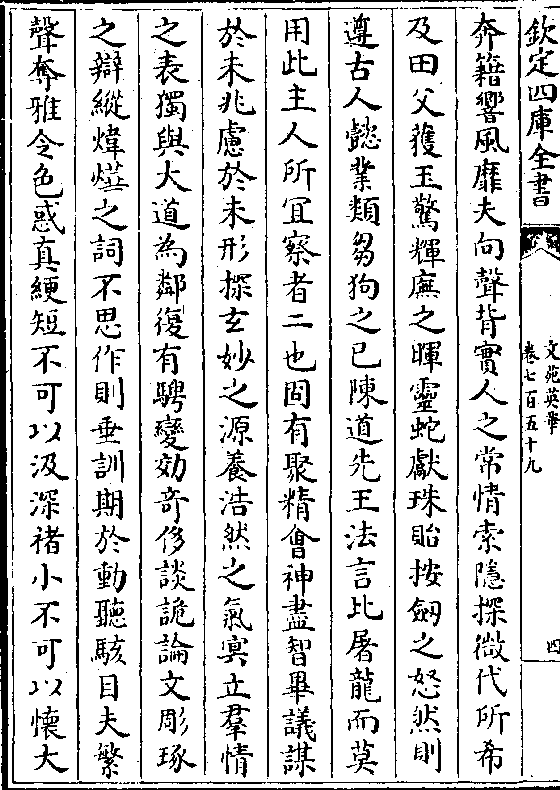 欽定四庫全書
文苑英華
卷七百五十九
四
奔籟響風靡夫向聲背實人之常情索隱探微代所希
及田父獲玉驚輝廡之暉靈蛇獻珠貽按劔之怒然則
遵古人懿業類芻狗之已陳道先王法言比屠龍而莫
用此主人所冝察者二也固有聚精㑹神盡智畢議謀
於未兆慮於未形探玄妙之源養浩然之氣㝠立羣情
之表獨與大道為鄰復有騁變効奇侈談詭論文彫琢
之辯縱煒燁之詞不思作則垂訓期於動聽駭目夫繁
聲奪雅令色惑真綆短不可以汲深褚小不可以懷大